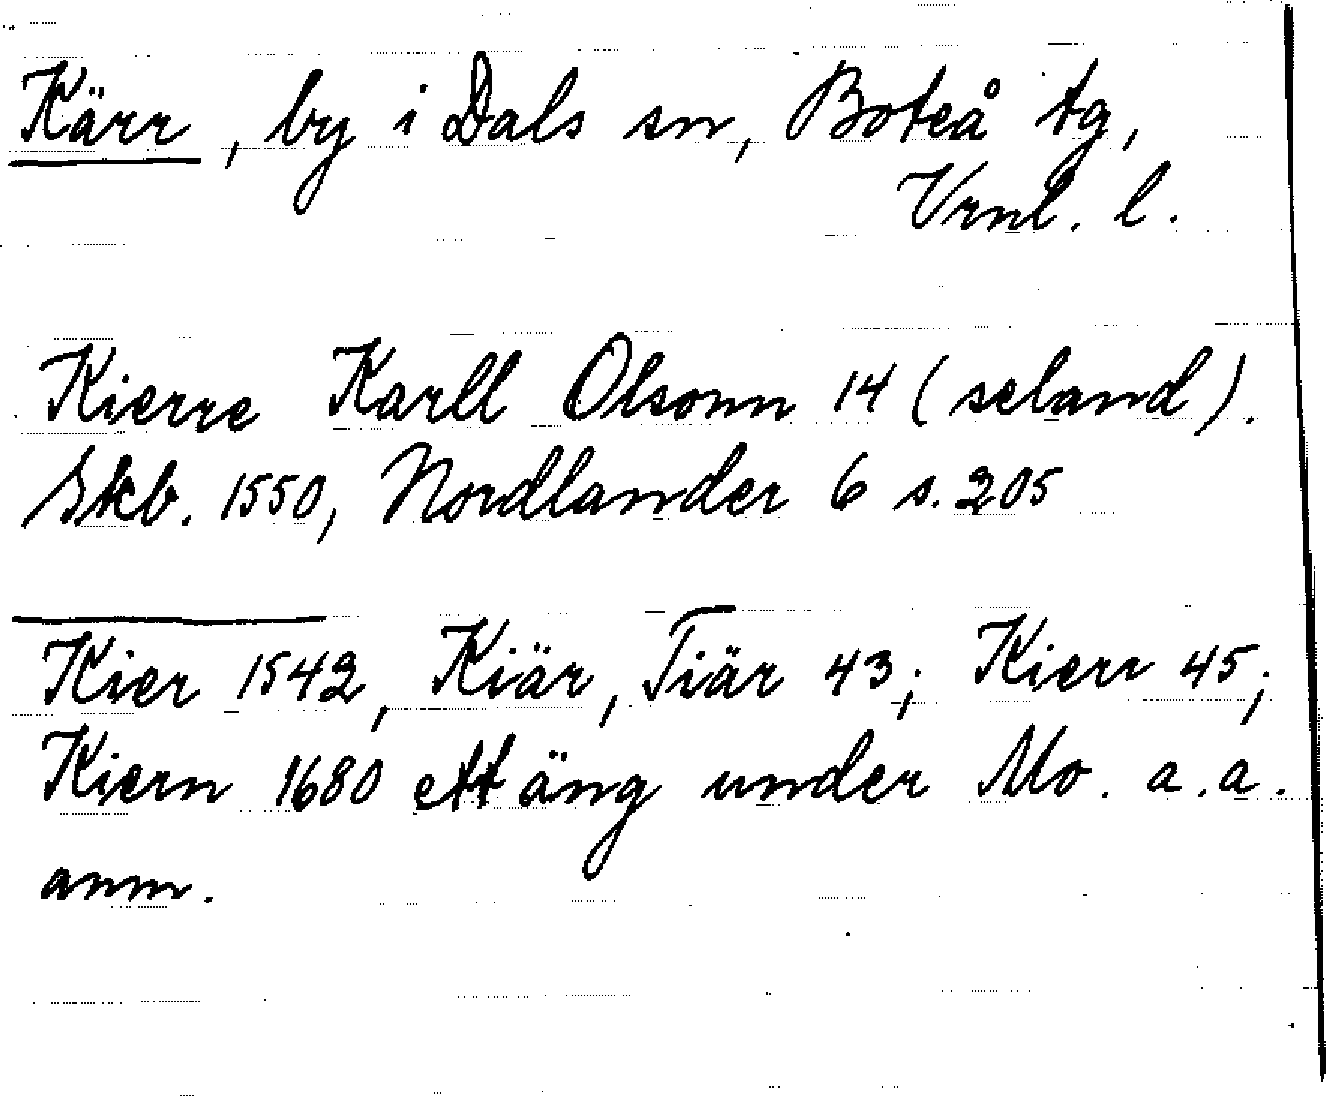 Kärr, by i Dals sn, Boteå tg,
Vrnl. l.
Kierre Karll Olsonn 14 (seland).
Skb. 1550, Nordlander 6 s. 205
Kier 1542, Kiär, Tiär 43; Kierr 45;
Kiern 1680 ett äng under Mo. a.a.
anm.